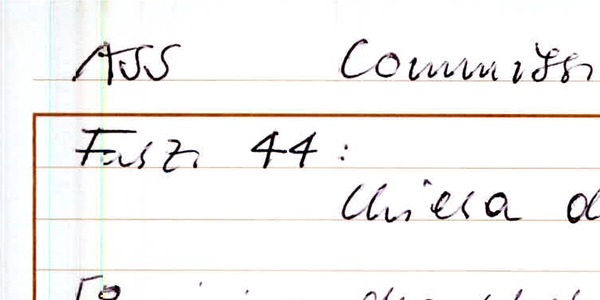 ASS Commissi
Fasz. 44:
Chiesa d